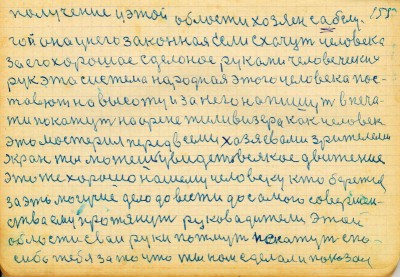 получение у этой области хозяен сабсу. 155
гой она у него законная если схачут человека
за его хорошае сделоное руками человеческих
рук эта система народная этого человека пос-
тавют на высоту и за него напишут в печа-
ти покажут на орене тиливизера как человек
это мосторил перед всеми хазяевами зрителеми
экран ты можеш увидеть всякое движение
это же хорошо нашему человеку кто бережег
за эть могучие дело довести до самого совершен-
ства ему протянут руководители этой
области сваи руки пожмут искажут спа-
сибо тебя за то что ты нам сделал и показал